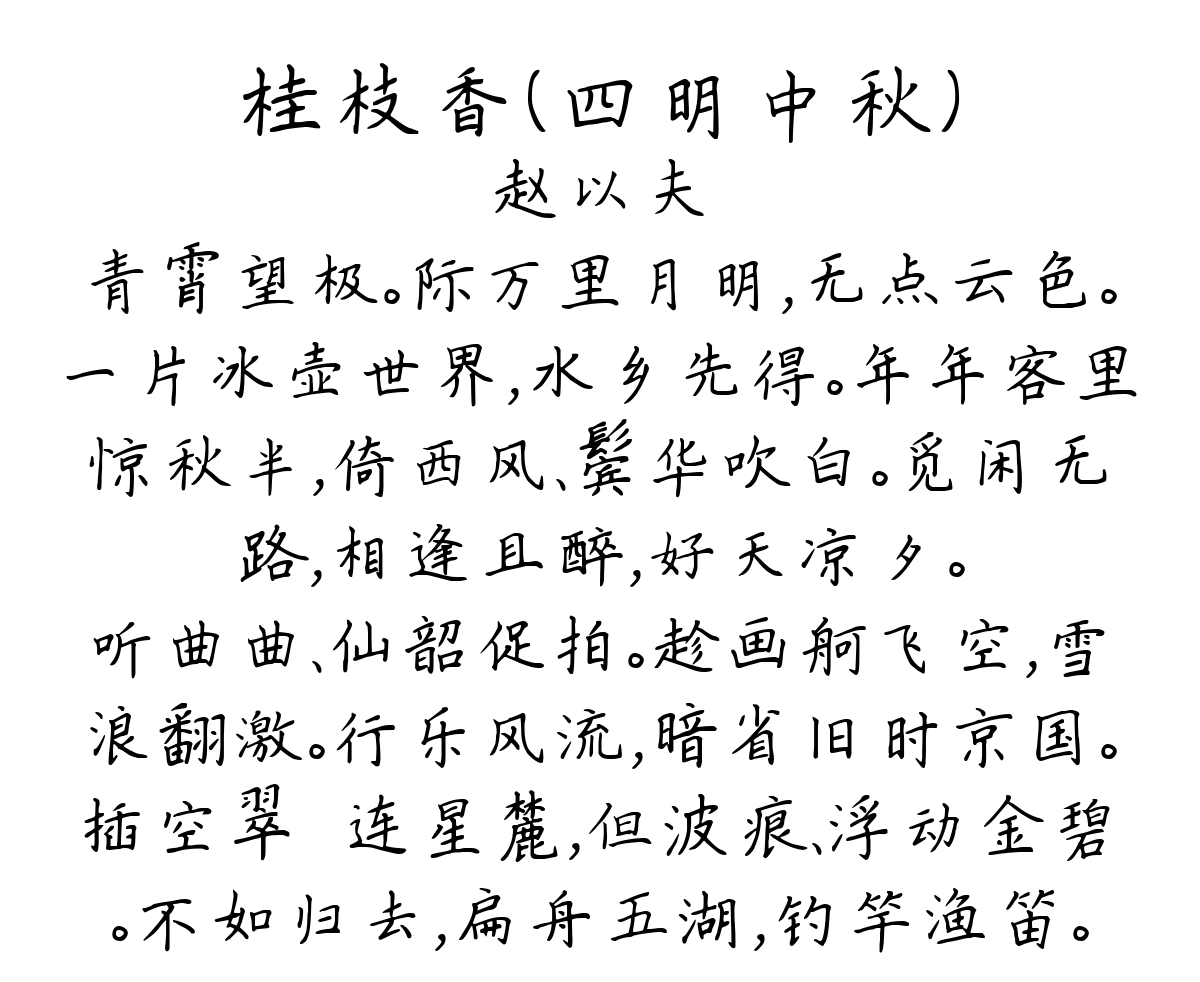 桂枝香(四明中秋)
赵以夫
青霄望极。际万里月明,无点云色。
一片冰壶世界,水乡先得。年年客里
惊秋半,倚西风、鬓华吹白。觅闲无
路,相逢且醉,好天凉夕。
听曲曲、仙韶促拍。趁画舸飞空,雪
浪翻激。行乐风流,暗省旧时京国。
插空翠 连星麓,但波痕、浮动金碧
。不如归去,扁舟五湖,钓竿渔笛。